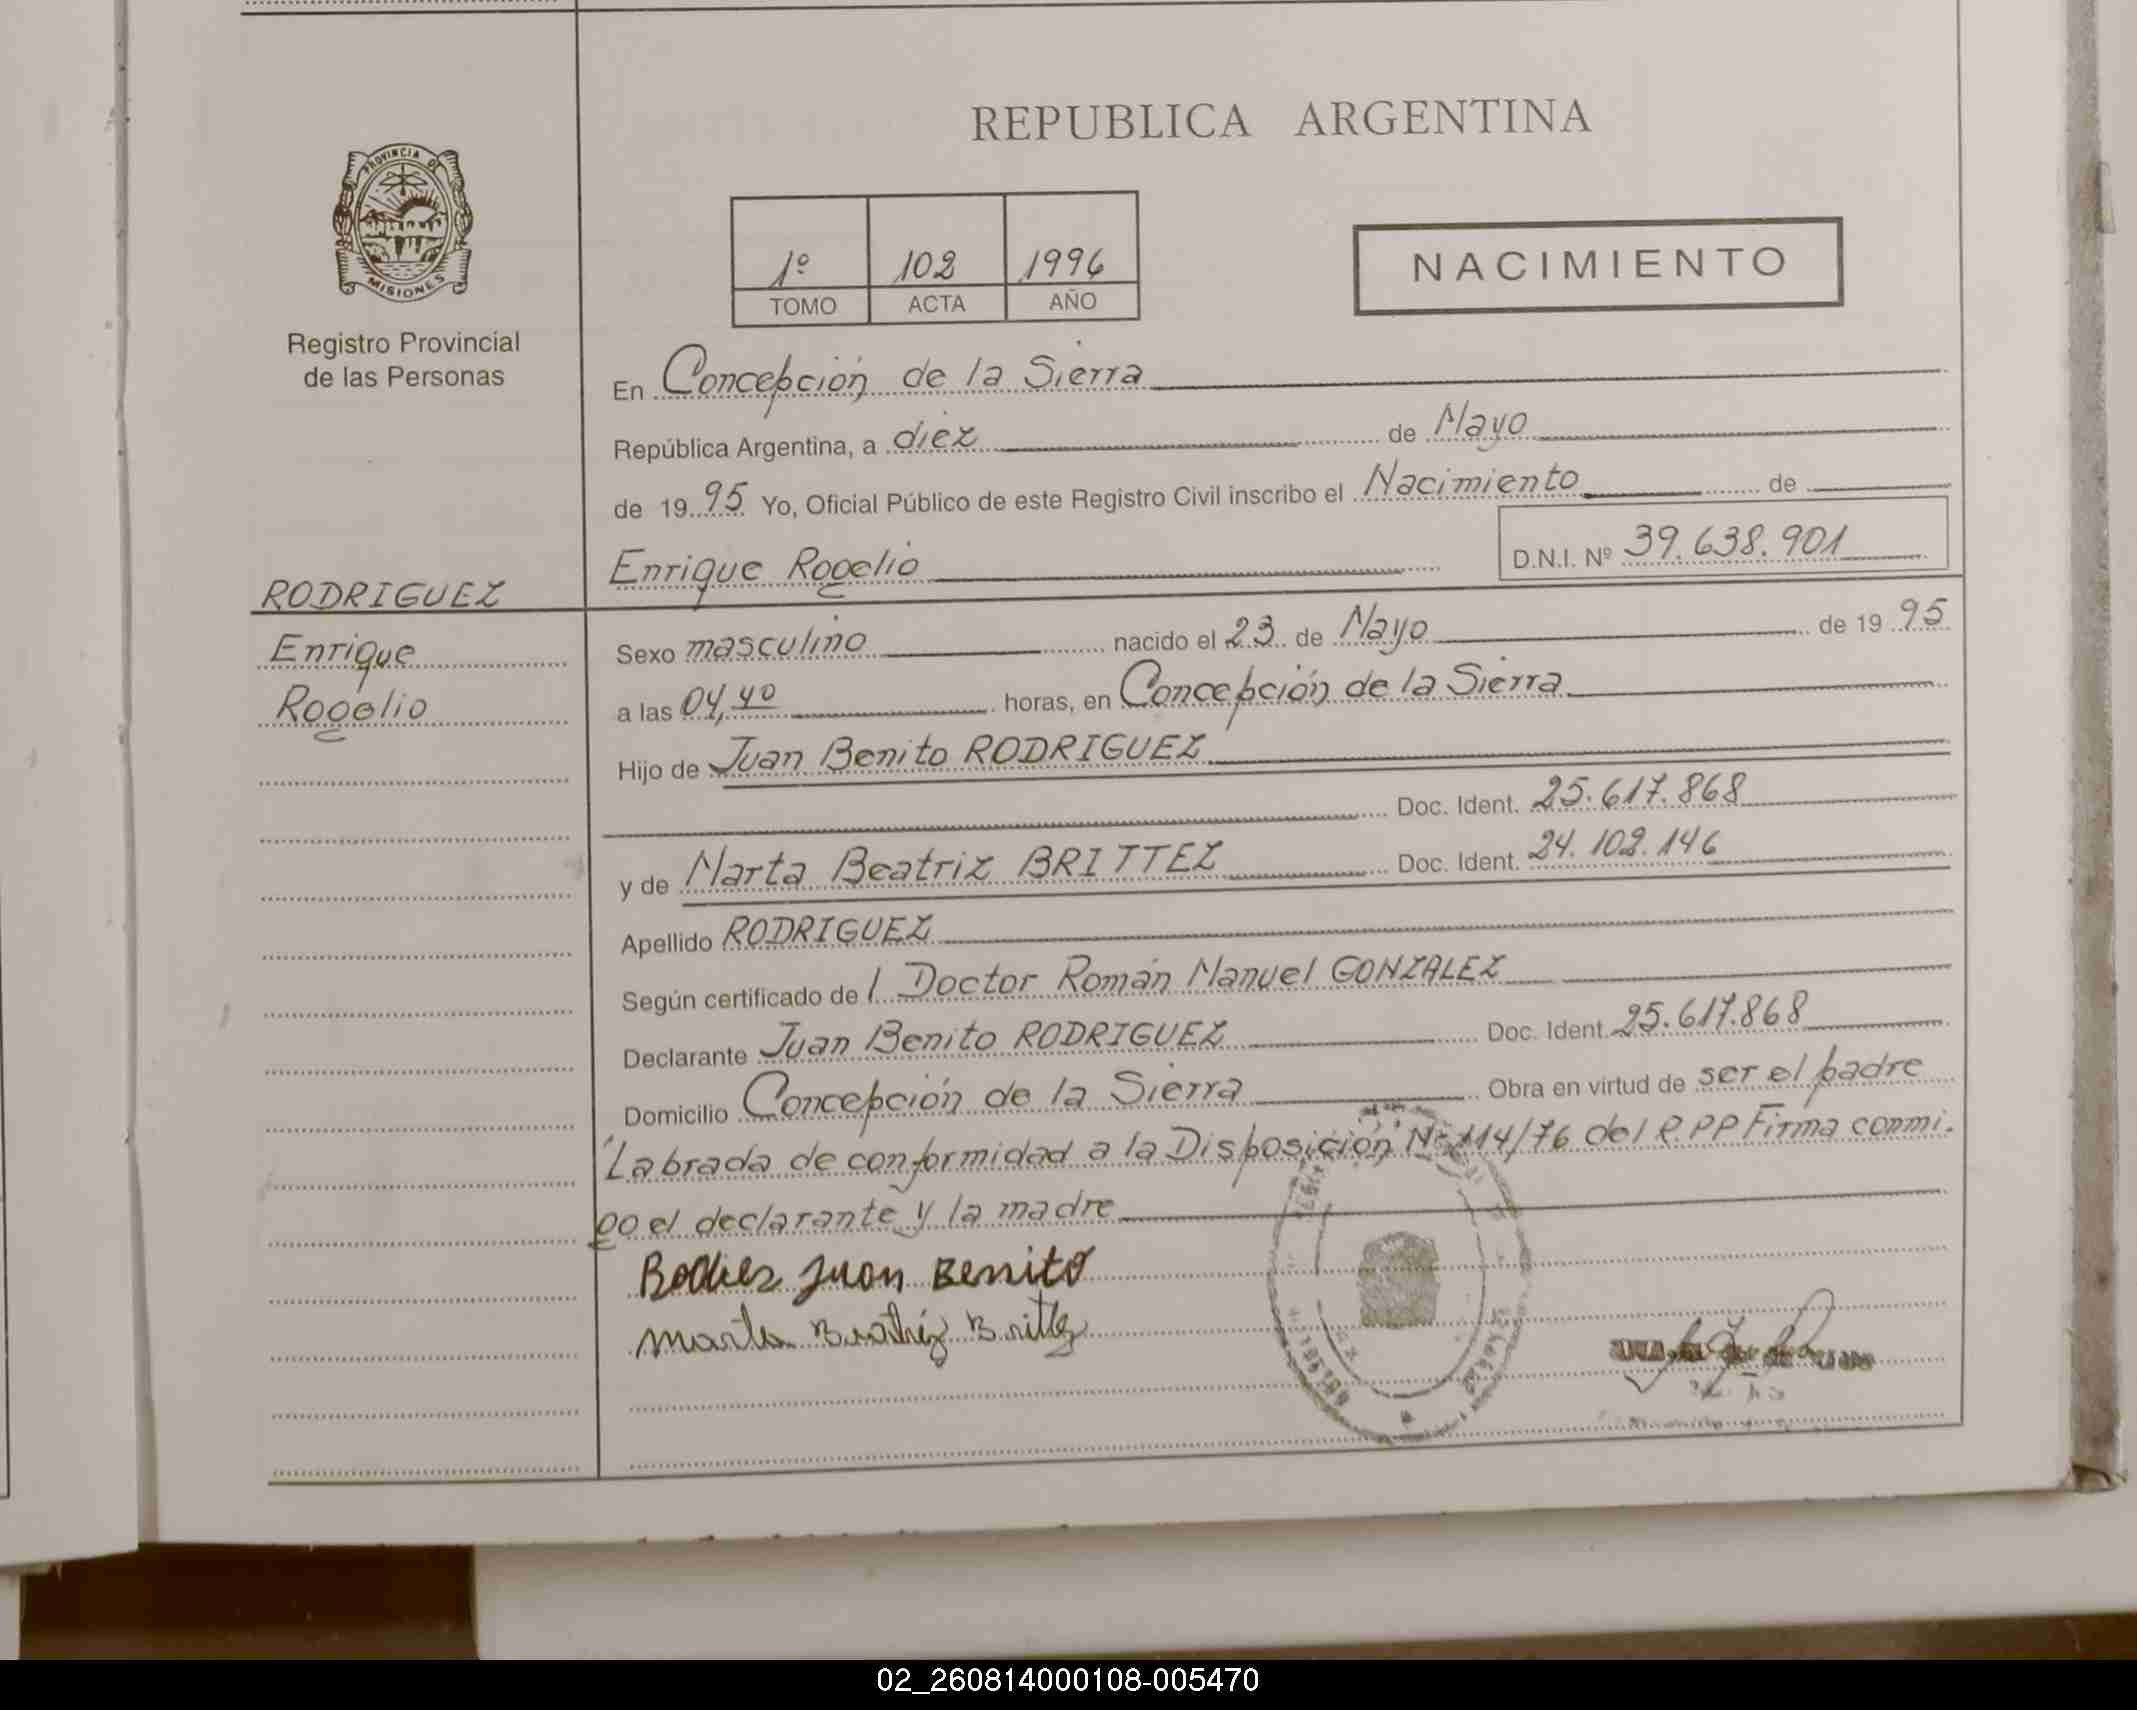 REPUBLICA ARGENTINA
PROVINCIA DE
MISIONES
Registro Provincial
de las Personas
1º 102 1996
TOMO ACTA AÑO
NACIMIENTO
En Concepción de la Sierra
República Argentina, a diez de Mayo
de 1995 Yo, Oficial Público de este Registro Civil inscribo el Nacimiento de
Enrique Rogelio D.N.I. Nº 39.638.901
RODRIGUEZ
Enrique
Rogelio
Sexo masculino nacido el 23 de Mayo de 1995
a las 04,40 horas, en Concepción de la Sierra
Hijo de Juan Benito RODRIGUEZ
Doc. Ident. 25.617.868
y de Marta Beatriz BRITTEZ Doc. Ident. 24.102.146
Apellido RODRIGUEZ
Según certificado de l Doctor Román Manuel GONZALEZ
Declarante Juan Benito RODRIGUEZ Doc. Ident. 25.617.868
Domicilio Concepción de la Sierra Obra en virtud de ser el padre
Labrada de conformidad a la Disposición Nº 114/76 del R.P.P Firma conmi-
go el declarante y la madre
Juan Benito
Marta Beatriz Brittez
02_260814000108-005470